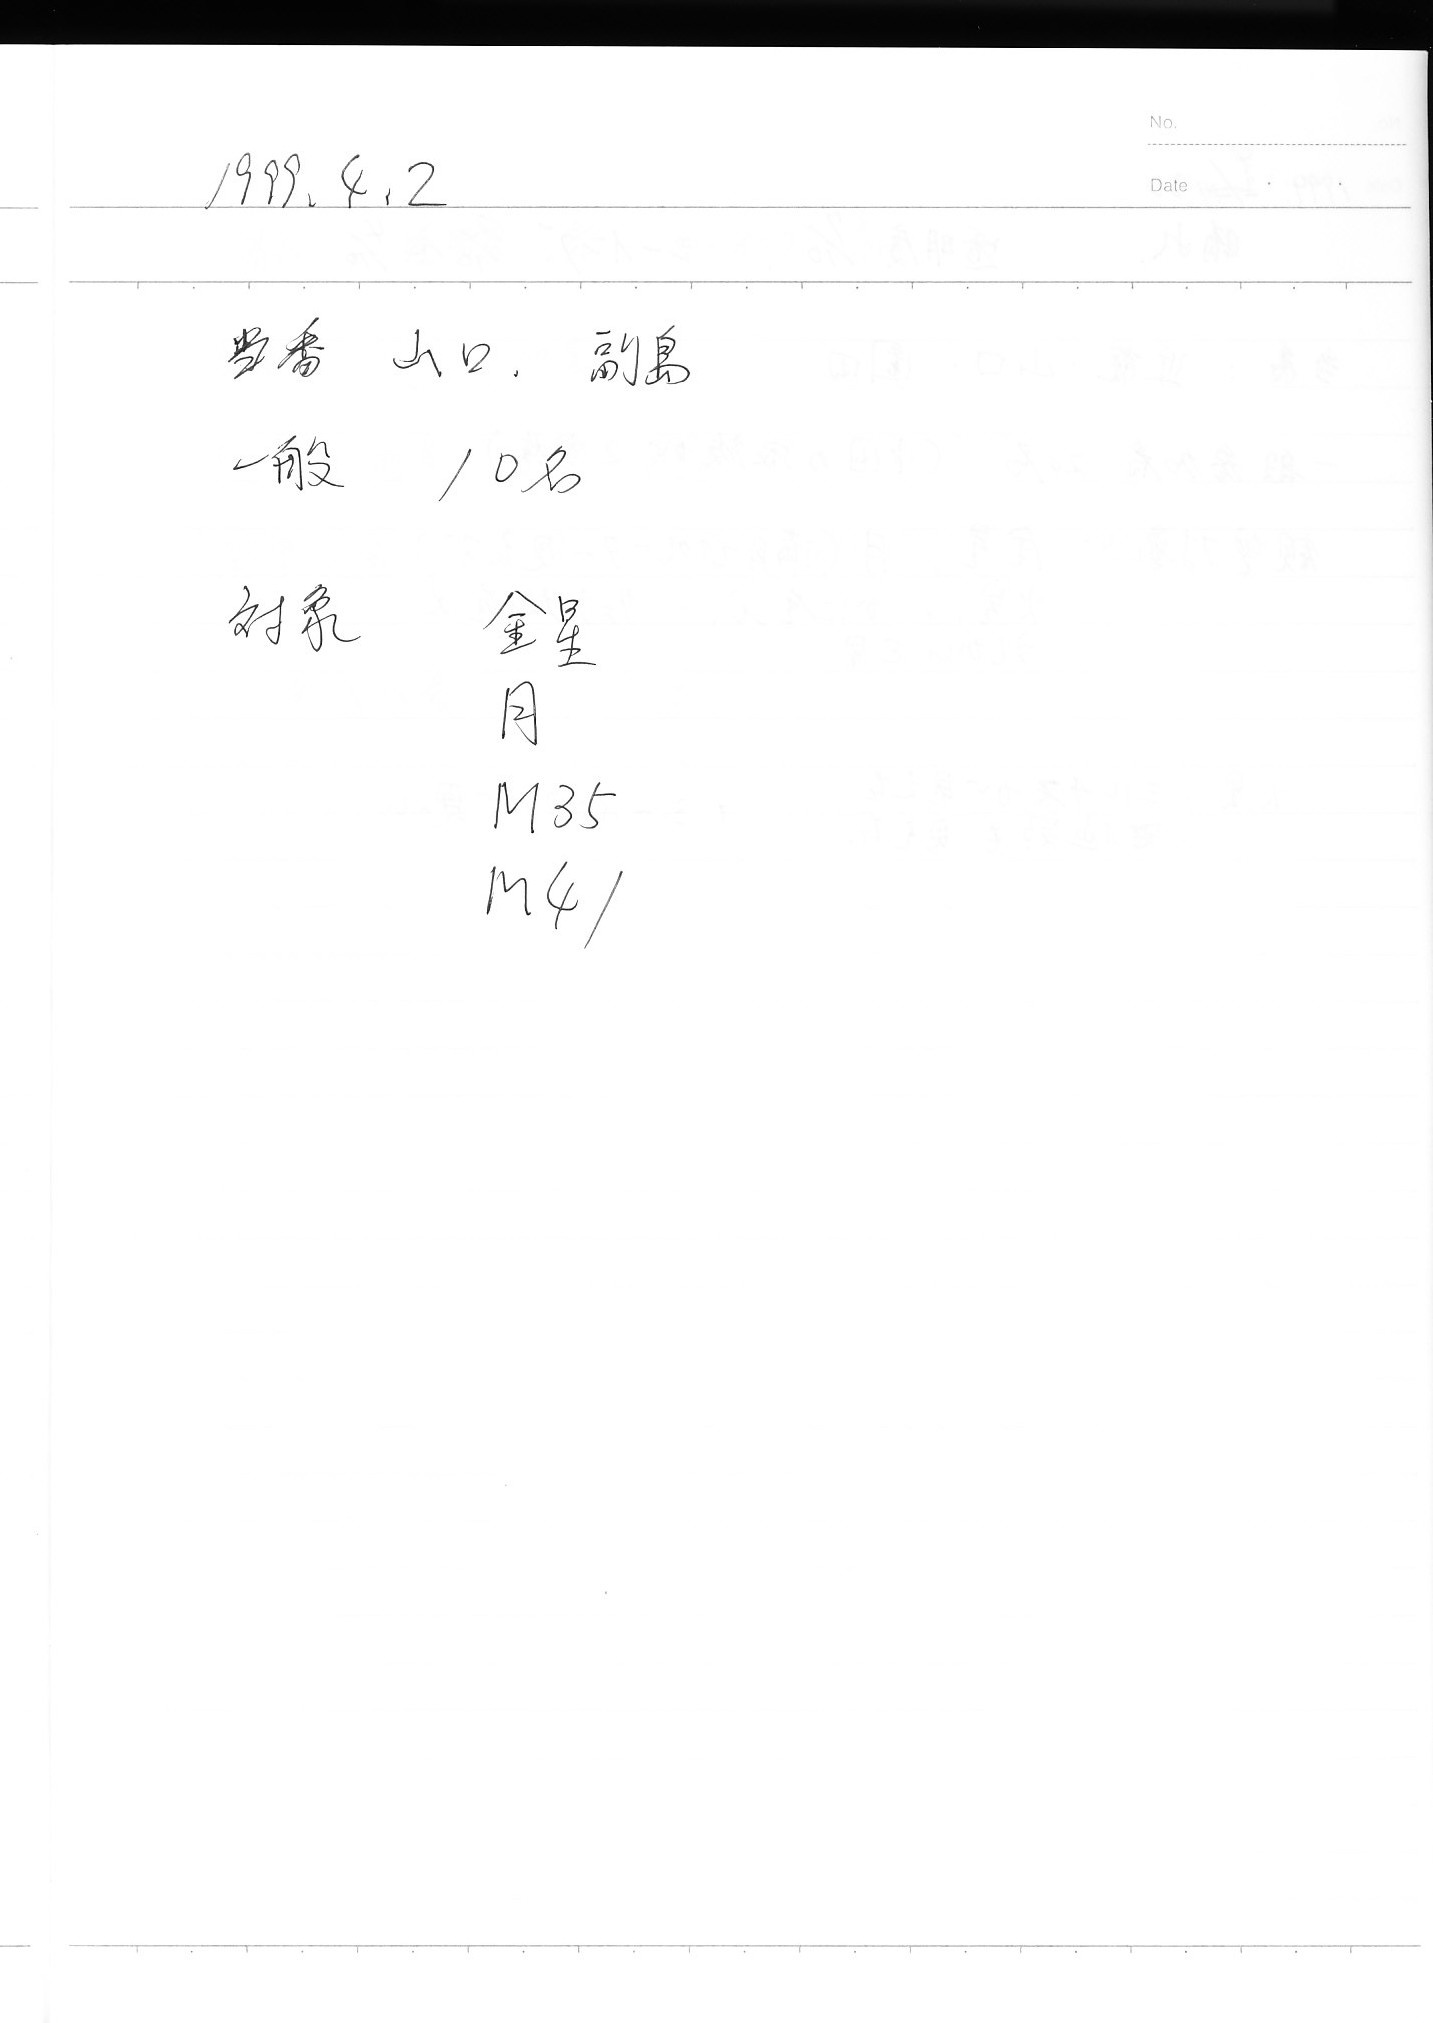 No.
1999.4.2
Date
当番 山口. 副島
一般 10名
対象 金星
月
M35
M41